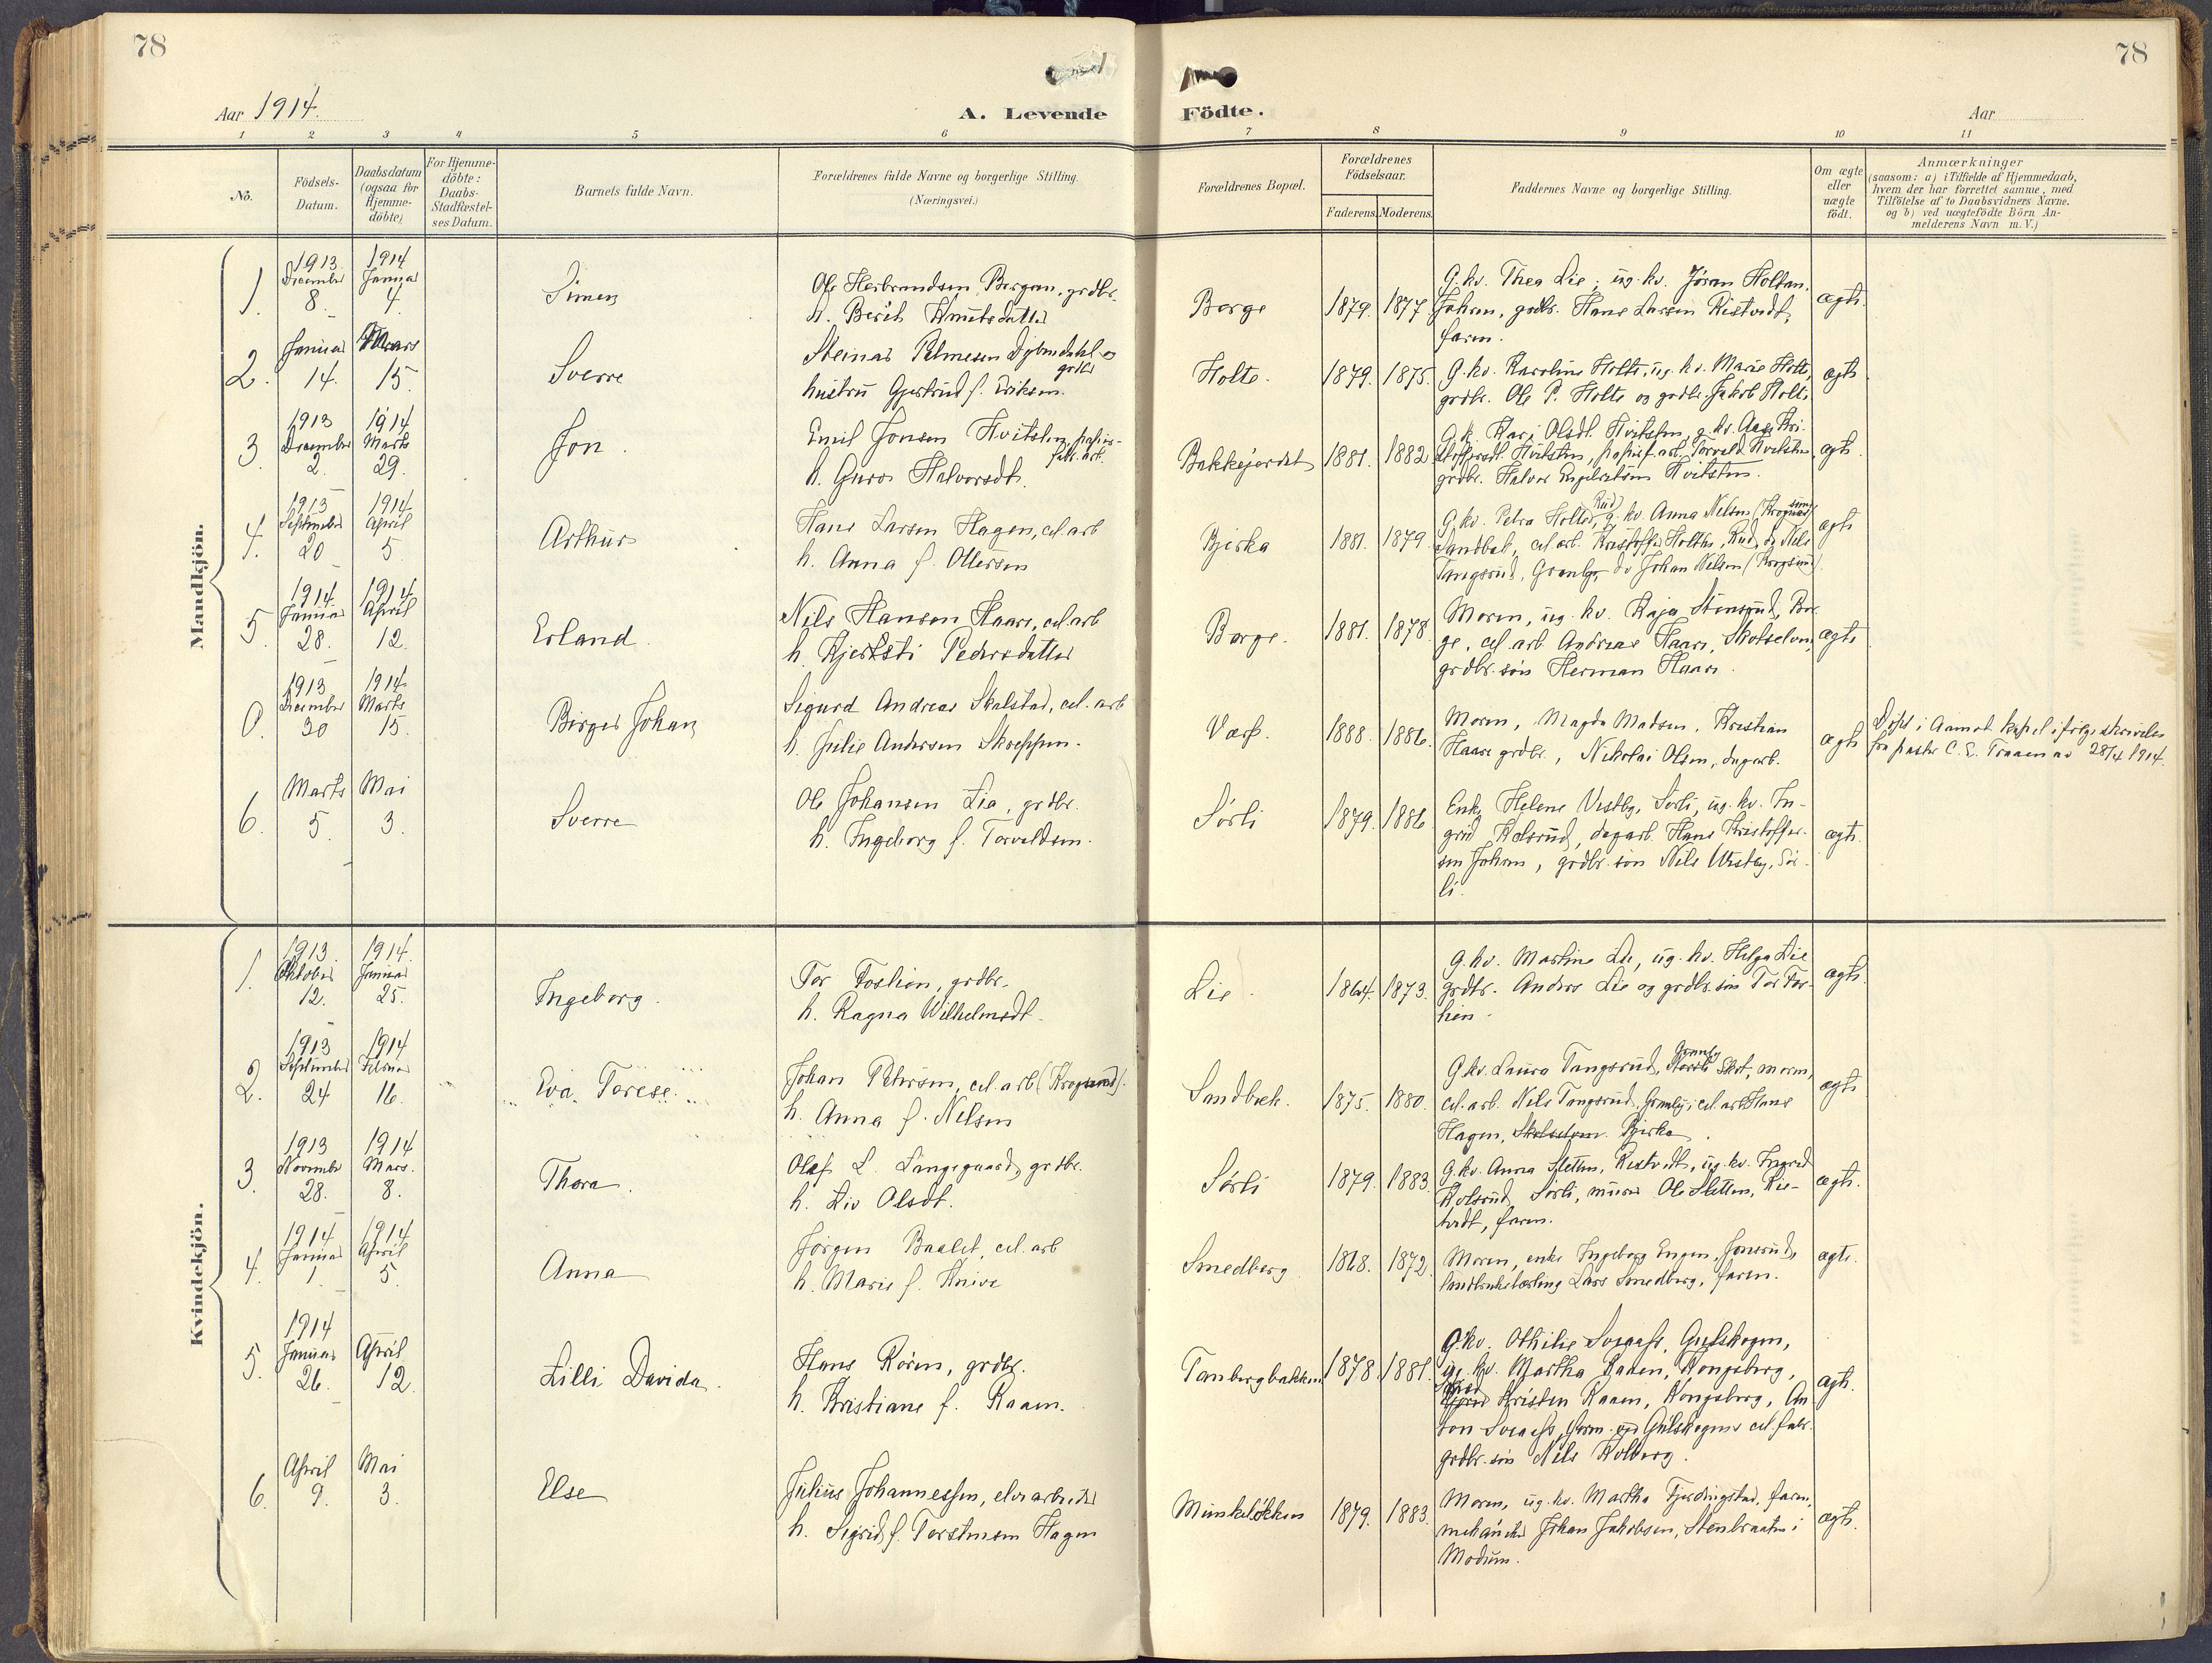 78
78
Aar 1914.
A. Levende
Födte.
Aar
1 2 3 4 5 6 7 8 9 10 11
No.
Födsels-
Datum.
Daabsdatum
(ogsaa for
Hjemme-
döbte)
For Hjemme-
döbte:
Daabs-
Stadfæstel-
ses Datum.
Barnets fulde Navn.
Forældrenes fulde Navne og borgerlige Stilling.
(Næringsvei.)
Forældrenes Bopæl.
Forældrenes
Födselsaar.
Faderens. Moderens.
Faddernes Navne og borgerlige Stilling.
Om ægte
eller
uægte
födt.
Anmærkninger
(saasom: a) i Tilfælde af Hjemmedaab,
hvem der har forrettet samme, med
Tilföielse af to Daabsvidners Navne.
og b) ved uægtefödte Börn An-
melderens Navn m. V.)
Mandkjön.
1.
1913 December 8.
1914 Januar 4.
Simen
Ole Herbrandsen Bergan, grdbr.
h. Berit Knutsdatter
Borge
1879. 1877.
G. kv. Thea Lie, ug. kv. Jöran Holtan,
grdbr. Hans Larsen Ristvedt,
faren.
ægte.
2.
Januar 14.
Mars 15.
Sverre
Steinar
grdbr
hustru Gjertrud f. Eriksen.
Holte.
1879. 1875.
G. kv. Karoline Holte, ug. kv. Marie Holte,
grdbr. Ole P. Holte og grdbr. Jakob Holte
ægte
3.
1913 December 2.
1914 Marts 29.
Jon.
Emil Jonsen Hvitsten, papir-
fabr. arb.
h. Guro Halvorsdt.
Bakkejordet
1881. 1882
G. k. Kari Olsdt. Hvitsten, g. kv. Aase Kri-
stoffersdt. Hvitsten, papirf. arb. Torvald Hvitsten
grdbr. Halvor Engebretsen Hvitsten.
ægte.
4.
1913 September 20
1914 April 5
Arthur
Hans Larsen Hagen, cel. arb
h. Anna f. Ottersen
Bjerka
1881. 1879.
Rud
G. kv. Petra Holter, g. kv. Anna Nelsen (Krogsrud)
Sandbak, cel. arb. Kristoffer Holter, Rud, do Nils
Tangsrud, Granly, do Johan Nelsen (Krogsrud).
ægte
5.
1914 Januar 28.
1914 April 12.
Erland.
Nils Hansen Haare, cel. arb
h. Kjersti Pedersdatter
Borge.
1881. 1878.
Moren, ug. kv. Kaja Stensrud, Bor-
ge, cel. arb Andreas Haare, Skotselven,
grdbr. sön Herman Haare.
ægte
0.
1913 December 30
1914 Marts 15.
Birger Johan
Sigurd Andreas Skalstad, cel. arb
h. Julie Andersen Skreppen.
Værp.
1888. 1886.
Moren, Magda Madsen, Kristian
Haare grdbr., Nikolai Olsen, dagarb.
ægte
Döpt i Aamot kapel ifölge skrivelse
fra pastor C. E. Traaen av 28/4 1914.
6.
Marts 5.
Mai 3.
Sverre
Ole Johansen Lia, grdbr.
h. Ingeborg f. Torvaldsen.
Sörli
1879. 1886
Enke Helene Vestby, Sörli, ug. kv. In-
grid Kolsrud, dagarb. Hans Kristoffer-
sen Johans, grdbr. sön Nils Vestby, Sör-
li.
ægte
Kvindekjön.
1.
1913. Oktober 12.
1914. Januar 25.
Ingeborg.
Tor Foslien, grdbr.
h. Ragna Wilhelmsdt.
Lie.
1864. 1873.
G. kv. Martine Lie, ug. kv. Helga Lie
grdbr. Anders Lie og grdbr. sön Tor Fos-
lien.
ægte.
2.
1913 September 24
1914 Februar 16.
Eva Torese.
Johan Petersen, cel. arb (Krogsrud).
h. Anna f. Nelsen
Sandbæk.
1875. 1880.
Granly
G. kv. Laura Tangsrud, Skot, moren,
cel. arb. Nils Tangsrud, Granly, cel. arb Hans
Hagen, Skotselven. Bjerka.
ægte
3.
1913 November 28.
1914 Mars. 8.
Thora.
Olaf L. Langegaard, grdbr.
h. Liv Olsdt.
Sörli
1879. 1883.
G. kv. Anna Sletten, Ristvedt, ug. kv. Ingrid
Kolsrud, Sörli, murer Ole Sletten, Ris-
tvedt, faren.
ægte.
4.
1914 Januar 1.
1914 April 5.
Anna
Jörgen Baalet, cel. arb
h. Marie f. Knive
Smedberg
1868. 1872.
Moren, enke Ingeborg Engen, Jonsrud,
landbrukslærling Lars Smedberg, faren.
ægte.
5.
1914 Januar 26.
April 12.
Lilli Davida.
Hans Rören, grdbr.
h. Kristiane f. Raaen.
Tanbergbakken
1878. 1881.
G. kv. Othilie, Gulskogen,
ug. kv. Martha Raaen, Kongsberg,
Kristen Raaen, Kongsberg, An-
ton, Gulskogens cel. fabr.
grdbr. sön Nils Kolberg.
ægte.
6.
April 9.
Mai 3.
Else
Julius Johannessen, elvearbeider
h. Sigrid f. Torstensen Hagen
Munkelökken
1879. 1883.
Moren, ug. kv. Martha Fjerdingstad, faren,
mekaniker Johan Jakobsen, Stenbraaten i
Modum.
ægte.